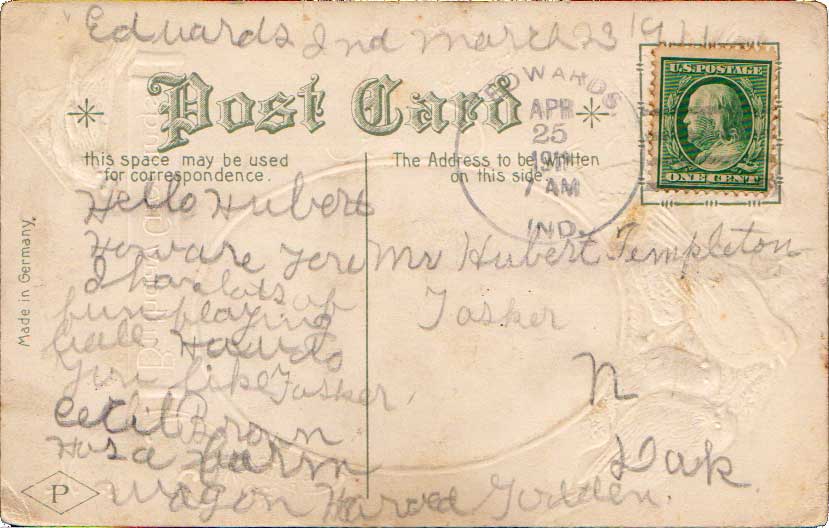 Edwards Ind March 23 1911
Post Card
this space may be used
for correspondence.
The Address to be written
on this side.
U.S. POSTAGE
ONE CENT
EDWARDS
APR
25
1911
7 AM
IND.
Made in Germany.
Hello Hubert
How are you
I has lots of
fun playing
ball How do
you like Tasker
Cecil Brown
Has a farm
wagon Harved
P
Mr Hubert Templeton
Tasker
N
Dak.